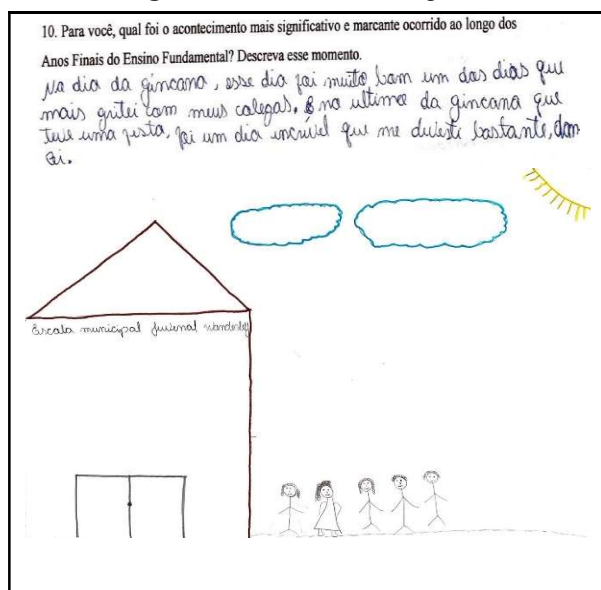 10. Para você, qual foi o acontecimento mais significativo e marcante ocorrido ao longo dos
Anos Finais do Ensino Fundamental? Descreva esse momento.
Na dia da gincana, esse dia foi muito bom um dos dias que
mais gritei com meus colegas, e no ultimo da gincana que
teve uma festa, foi um dia incrível que me diverti bastante, dan
cei.
Escola municipal Juvenal wanderley